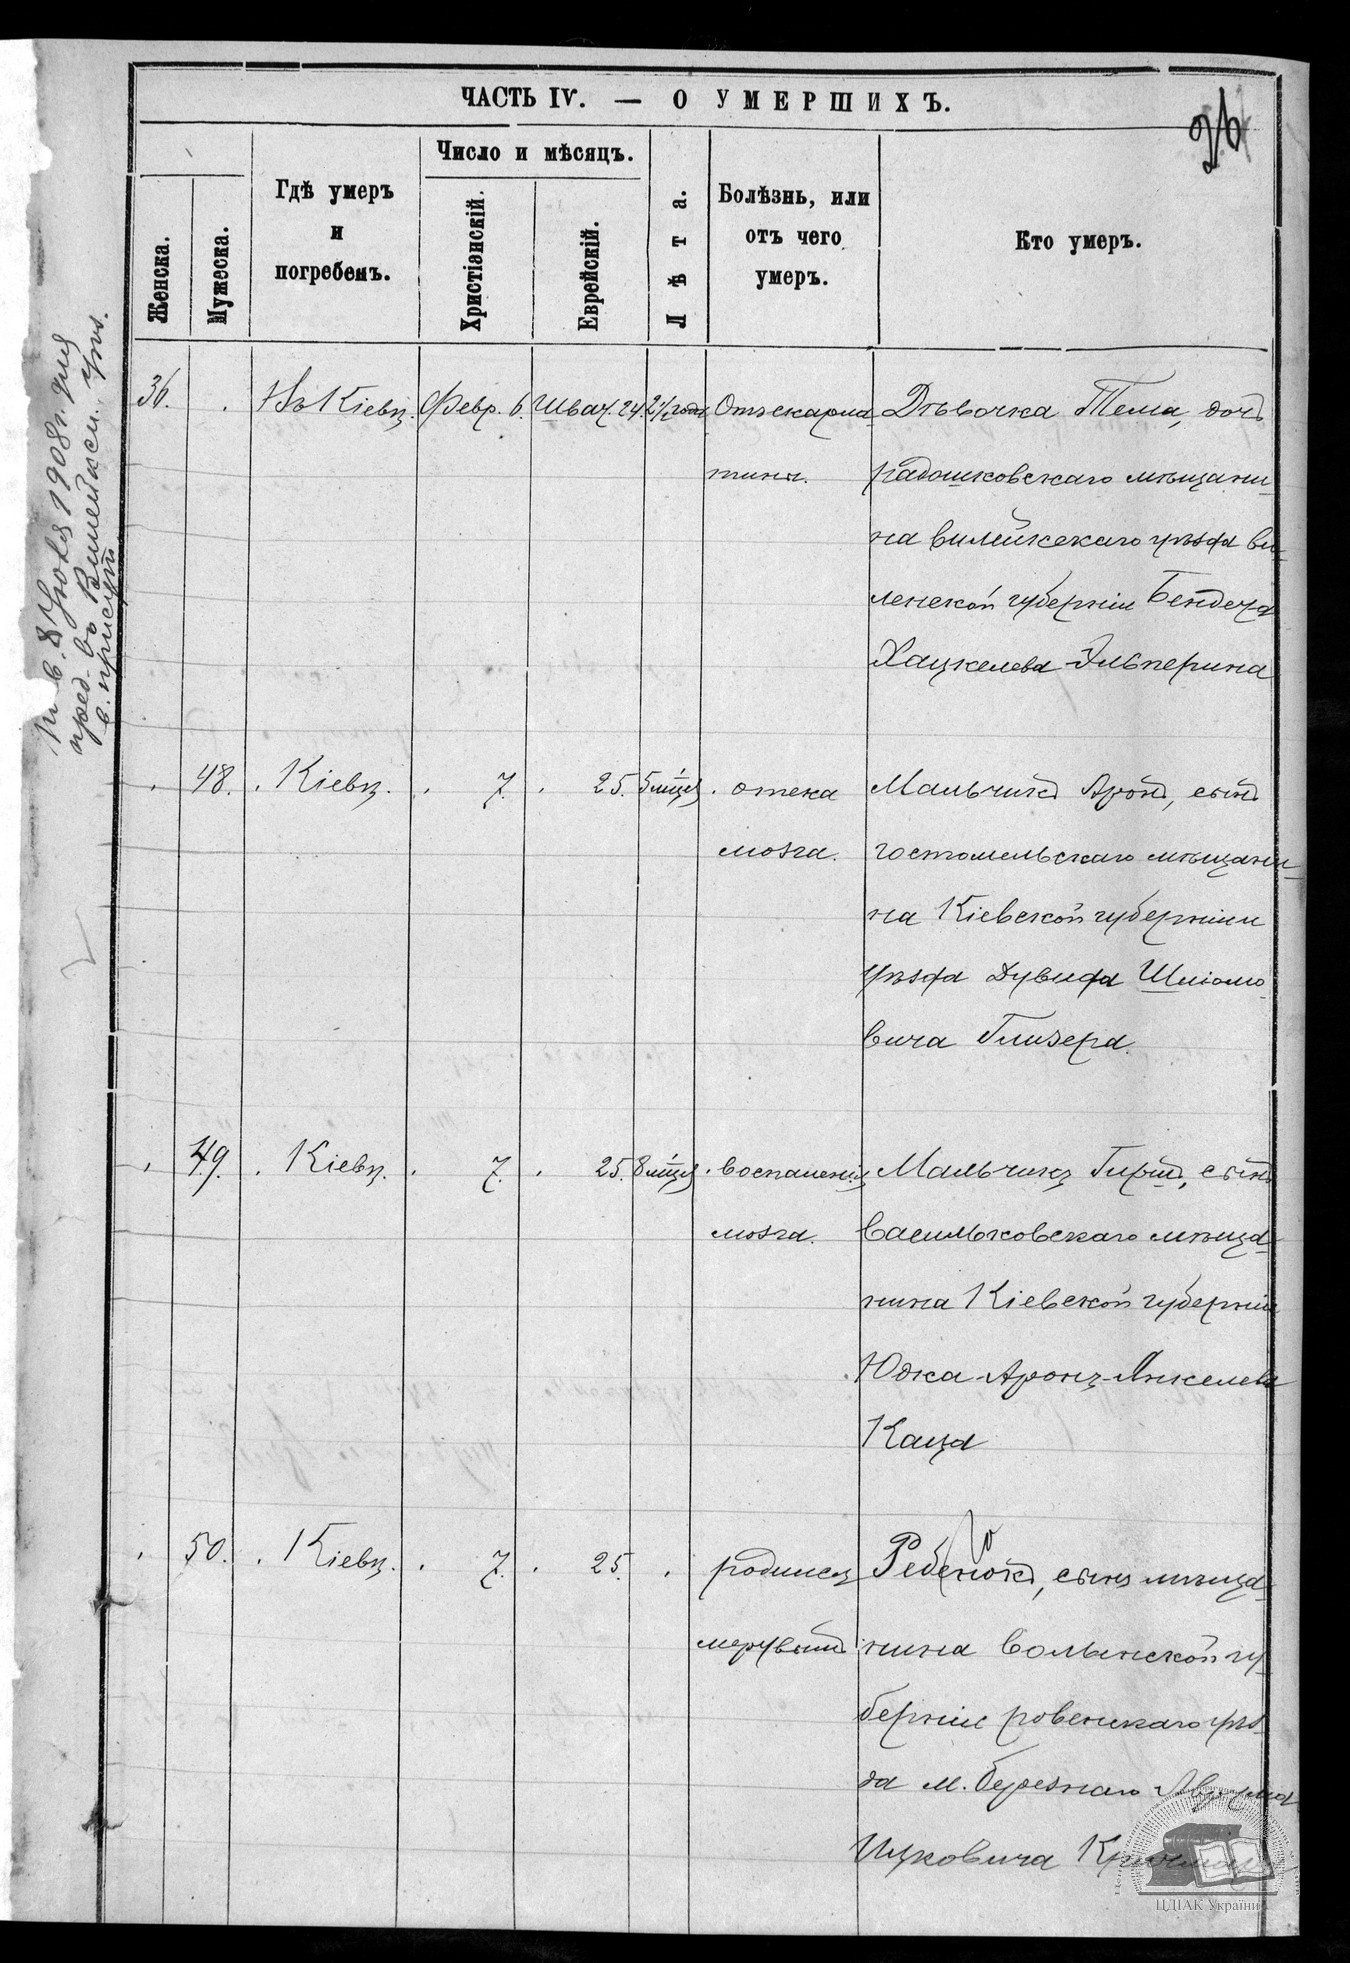 ЧАСТЬ IV. — О УМЕРШИХЪ.
26
Женска.
Мужеска.
Гдѣ умеръ
и
погребенъ.
Число и мѣсяцъ.
Христіанскій.
Еврейскій.
Лѣта.
Болѣзнь, или
отъ чего
умеръ.
Кто умеръ.
36. . Въ Кіевѣ. Февр. 6. Шват. 24. 2½ года Отъ скарла- Дѣвочка Тема, дочь
тины. радошковскаго мѣщани-
на вилейскаго уѣзда ви-
ленской губерніи Бендета
Хацкелева Альперина
. 48. . Кіевѣ. . 7. . 25. 5 мѣц. . отека Мальчикъ Аронъ, сынъ
мозга. гостомельскаго мѣщани-
на Кіевской губерніи
уѣзда Дувида Шліомо-
вича Глизера.
. 49. . Кіевѣ. . 7. . 25. 8 мѣц. . воспаленія Мальчикъ Гиршъ, сынъ
мозга. васильковскаго мѣща-
нина Кіевской губерніи
Юдка-Аронъ-Янкелева
Каца
. 50. . Кіевѣ. . 7. . 25. . родился Ребенокъ, сынъ мѣща-
мертвый нина волынской гу-
берніи ровенскаго уѣз-
да м. Березнаго Аврума
Ицковича
8 Іюля 1908 г. для
пред. въ Вилейск. уѣз.
в. присут.
ЦДІАК України